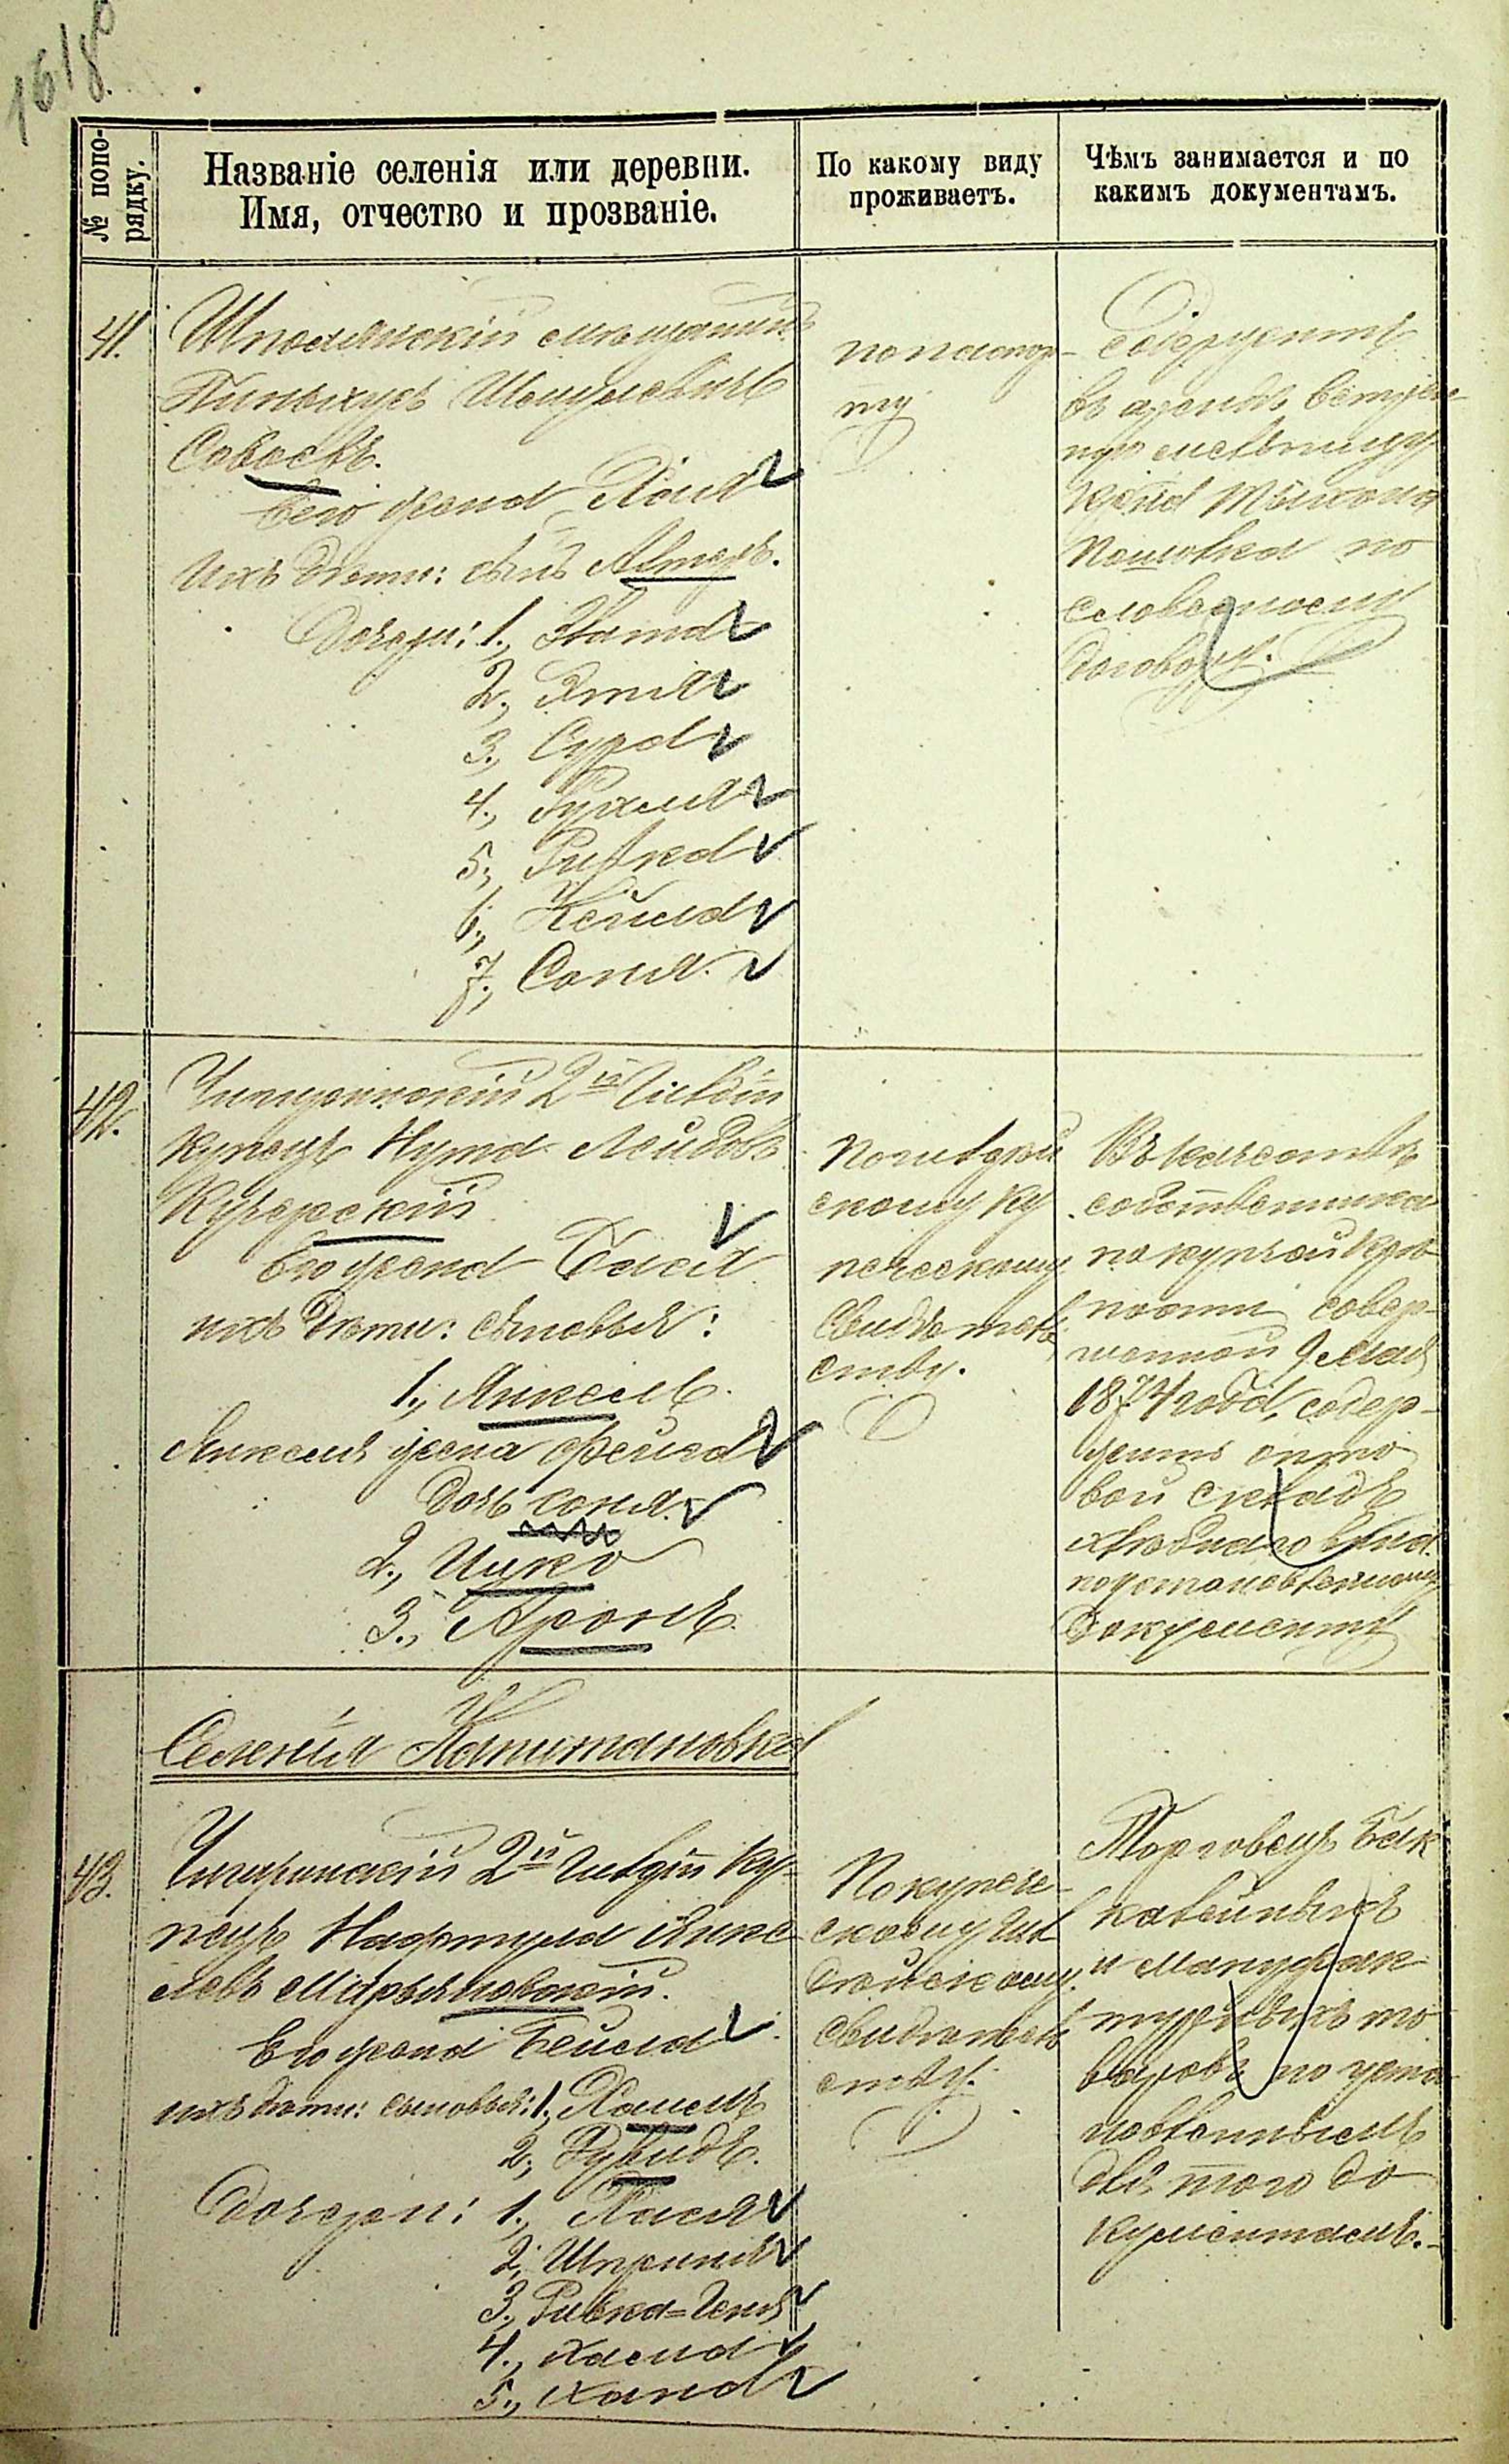 № попо-
рядку.
Названіе селенія или деревни.
Имя, отчество и прозваніе.
По какому виду
проживаетъ.
Чѣмъ занимается и по
какимъ документамъ.
41.
Шполянскій мѣщанинъ
Пинькусъ
его жена Хая
ихъ дѣти: сынъ
Дочери: 1.,
2.,
3., Сура
4., Рухля
5., Ривка
6., Кейла
7., Соня.
по паспор-
ту
Содержитъ
въ арендѣ вѣтрен-
ную мельницу
по
словесному
договору.
42.
Чигиринскій 2й гильдіи
купецъ Нута Лейбовъ
Кучерскій
Его жена Бася
ихъ дѣти: сыновья:
1., Янкель.
Янкеля жена Фейга
дочь Соня.
2., Ицко
3., Аронъ.
По гильдей
скому ку
печескому
свидѣтель
ству.
Въ качествѣ
собственника
по купчей крѣ
пости совер-
шенной 9 мая
1874 года, содер-
житъ опто
вой складъ
хлѣбнаго вина.
по установленному
документу
Селенія Капитановка
43.
Чигиринскій 2й гильдіи ку-
пецъ Нафтула Янке
левъ Мирьяновскій.
Его жена Бейла
ихъ дѣти: сыновья: 1., Хаимъ
2., Рувидъ.
Дочери: 1., Пася
2., Шпринця
3., Ривка=Геня
4., Хасия
5., Хана
По купече-
скому гил
дейскому
свидѣтель
ству.
Торговецъ бак
калейныхъ
и мануфак
турныхъ то
варовъ по уста
новленнымъ
для того до
кументамъ.